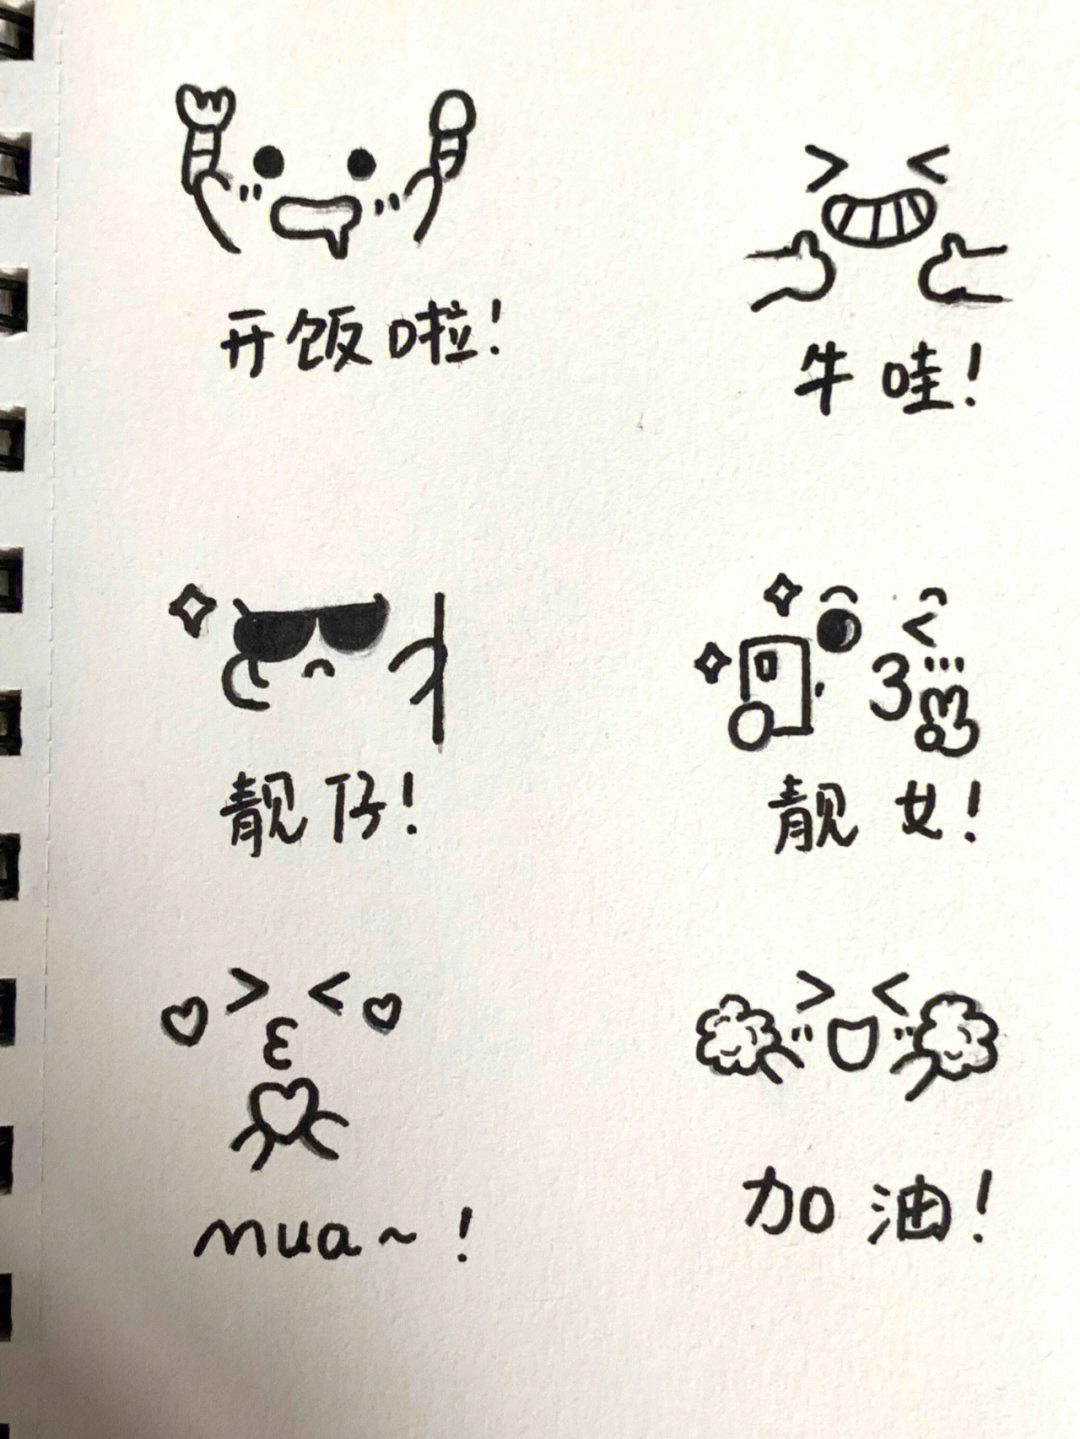 开饭啦！
牛哇！
靓仔！
靓女！
mua~！
加油！